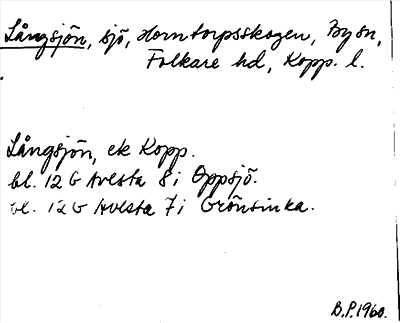 Långsjön, sjö, Horntorpsskogen, By sn,
Folkare hd, Kopp. l.
Långsjön, ek Kopp.
bl. 12 G Avesta 8 i Oppsjö.
bl. 12 G Avesta 7 i Grönsinka.
B.P. 1960.